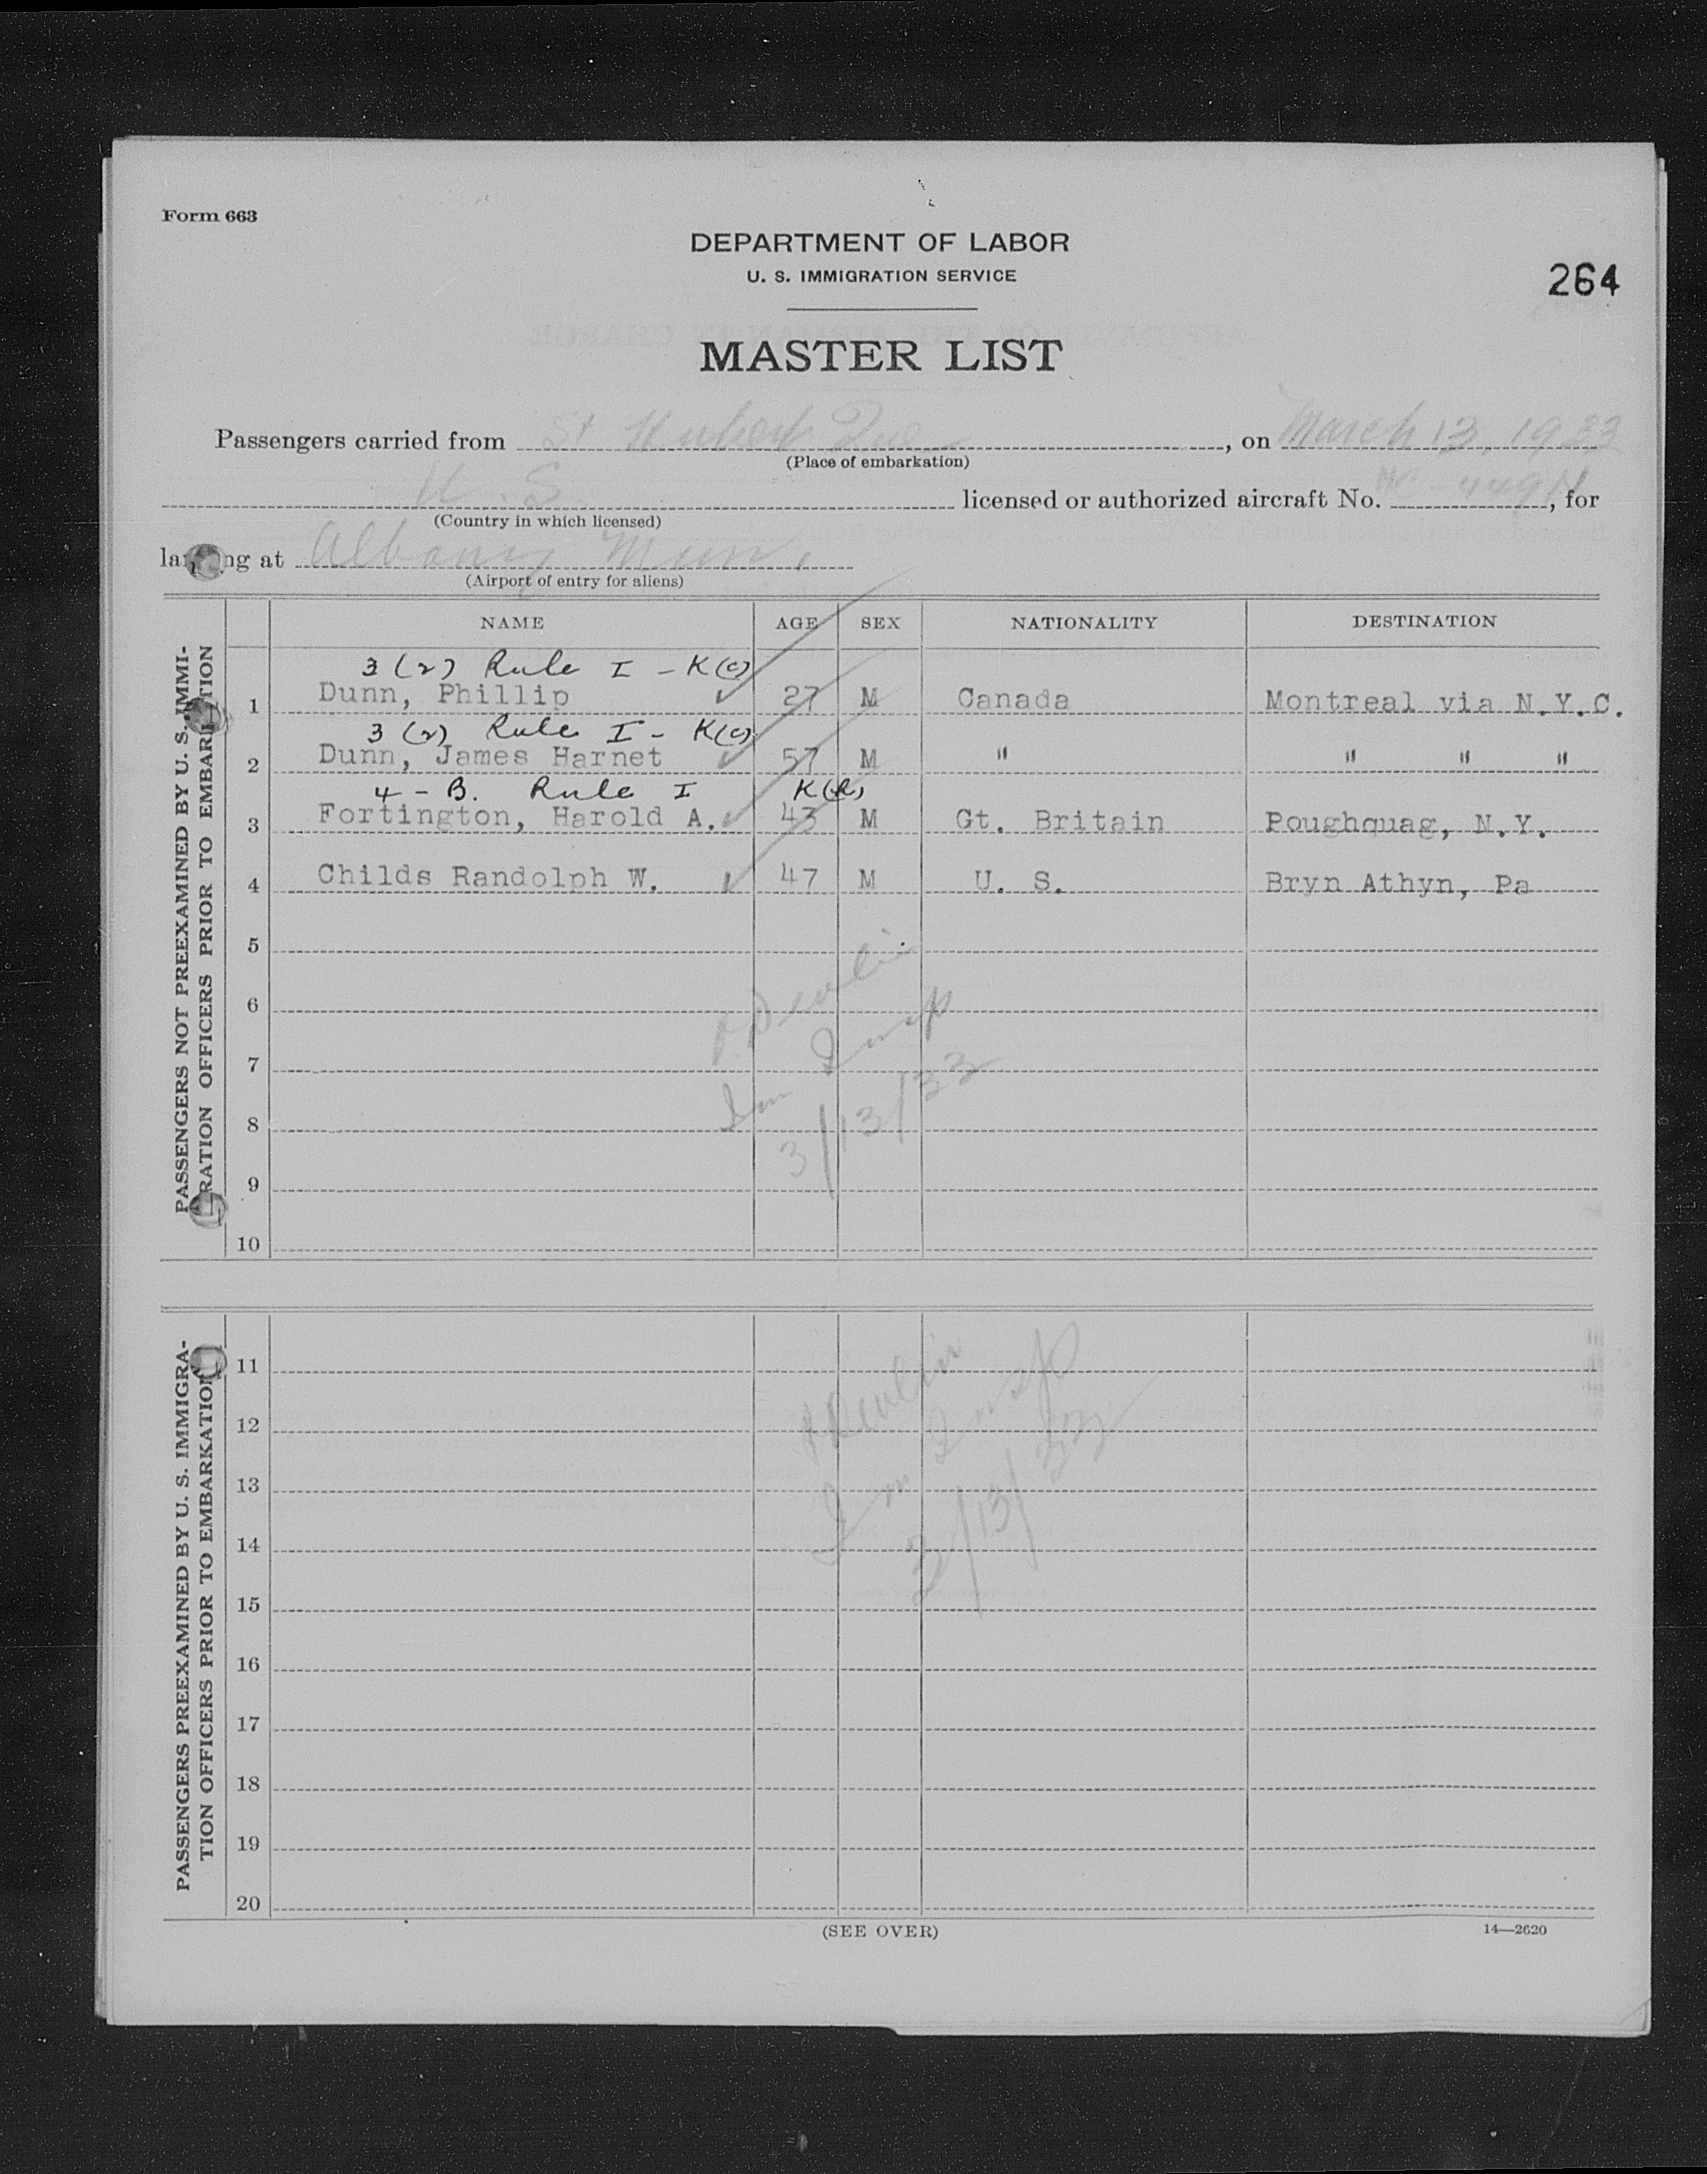 Form 663
DEPARTMENT OF LABOR
U. S. IMMIGRATION SERVICE
264
MASTER LIST
Passengers carried from St Hubert Que, on March 13, 1933
(Place of embarkation)
U. S. licensed or authorized aircraft No. , for
(Country in which licensed)
landing at Albany Mun.
(Airport of entry for aliens)
NAME AGE SEX NATIONALITY DESTINATION
PASSENGERS NOT PREEXAMINED BY U. S. IMMI-
GRATION OFFICERS PRIOR TO EMBARKATION
3 (2) Rule I - K(c)
1 Dunn, Phillip 27 M Canada Montreal via N.Y.C.
3 (2) Rule I - K(c)
2 Dunn, James Harnet 57 M " " " "
4 - B. Rule I K(R)
3 Fortington, Harold A. 43 M Gt. Britain Poughquag, N.Y.
4 Childs Randolph W. 47 M U. S. Bryn Athyn, Pa
5
6
7
8
9
10
Devlin
Im Insp
3/13/33
PASSENGERS PREEXAMINED BY U. S. IMMIGRA-
TION OFFICERS PRIOR TO EMBARKATION
11
12
13
14
15
16
17
18
19
20
Devlin
Im Insp
3/13/33
(SEE OVER)
14—2620